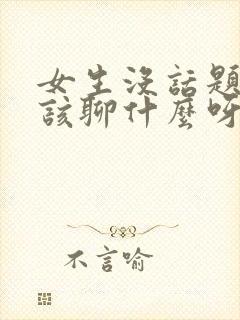 女生沒話題
該聊什麼呀
不言喻